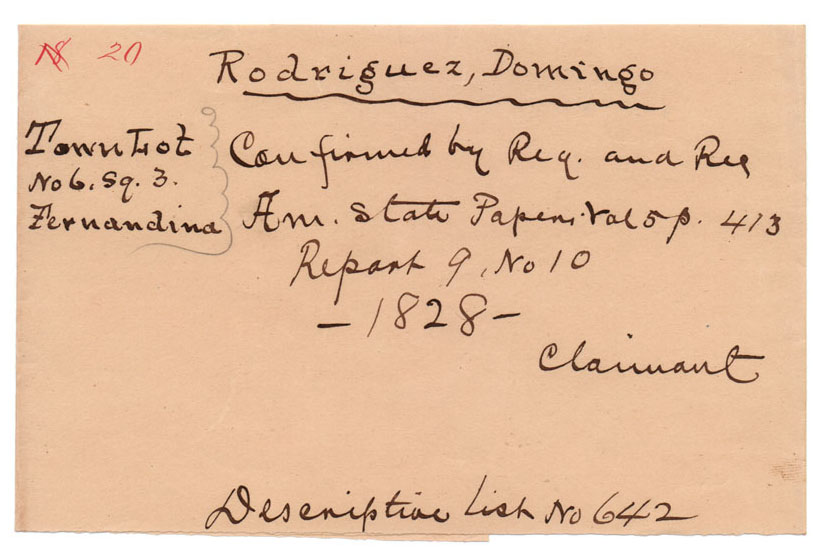 20
Rodriguez, Domingo
Town Lot
No 6. Sq. 3.
Fernandina
Confirmed by Reg. and Rec
Am. State Papers. Vol 5 p. 413
Report 9, No 10
- 1828 -
Claimant
Descriptive List No 642